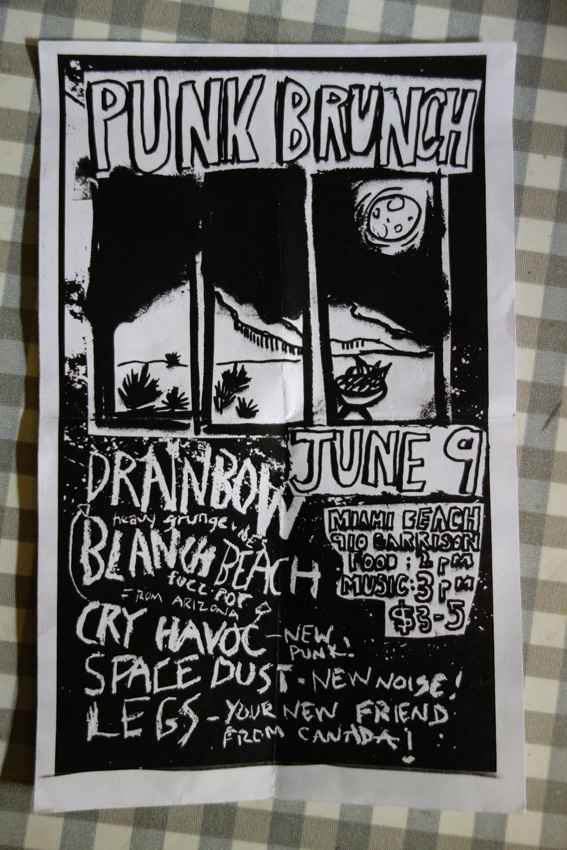 PUNK BRUNCH
JUNE 9
DRAINBOW
heavy grunge
BLANCH BEACH
FUZZ-POP
FROM ARIZONA
CRY HAVOC - NEW
PUNK!
SPACE DUST - NEW NOISE!
LEGS - YOUR NEW FRIEND
FROM CANADA!
MIAMI BEACH
910 GARRISON
FOOD: 2 PM
MUSIC: 3 PM
$3-5